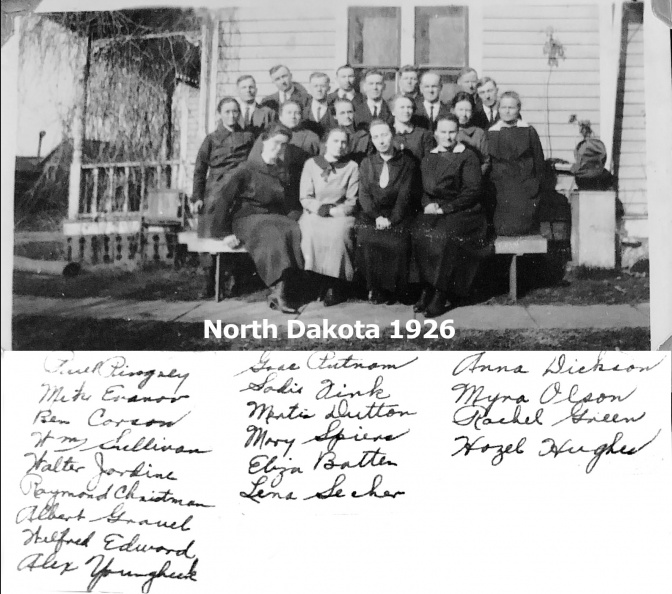 North Dakota 1926
Pingrey
Mike Evanov
Ben Corson
Wm Sullivan
Walter Jardine
Raymond Christman
Albert Gravel
Wilfred Edward
Alex
Grac Putnam
Sadie Fink
Mertis Dutton
Mary Spiers
Eliza Batten
Lena Secher
Anna Dickson
Myra Olson
Rachel Green
Hazel Hughes